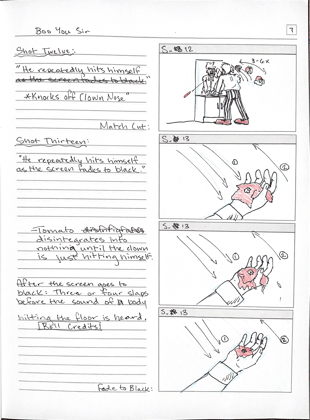 Boo You Sir
7
Shot Twelve:
"He repeatedly hits himself
as the screen fades to black."
*Knocks off Clown Nose"
Match Cut:
Shot Thirteen:
"He repeatedly hits himself
as the screen fades to black."
-Tomato
disintegrates into
nothing until the clown
is just hitting himself.
After the screen goes to
black: Three or four slaps
before the sound of a body
hitting the floor is heard.
[Roll Credits]
Fade to Black:
S. 12
S. 13
①
②
S. 13
①
②
S. 13
①
②